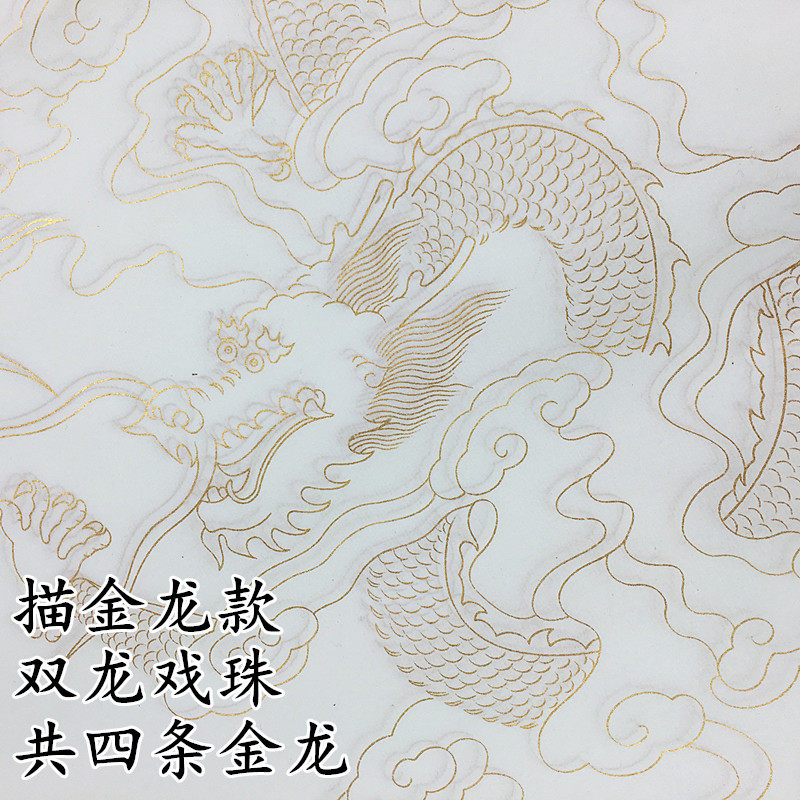 描金龙款
双龙戏珠
共四条金龙